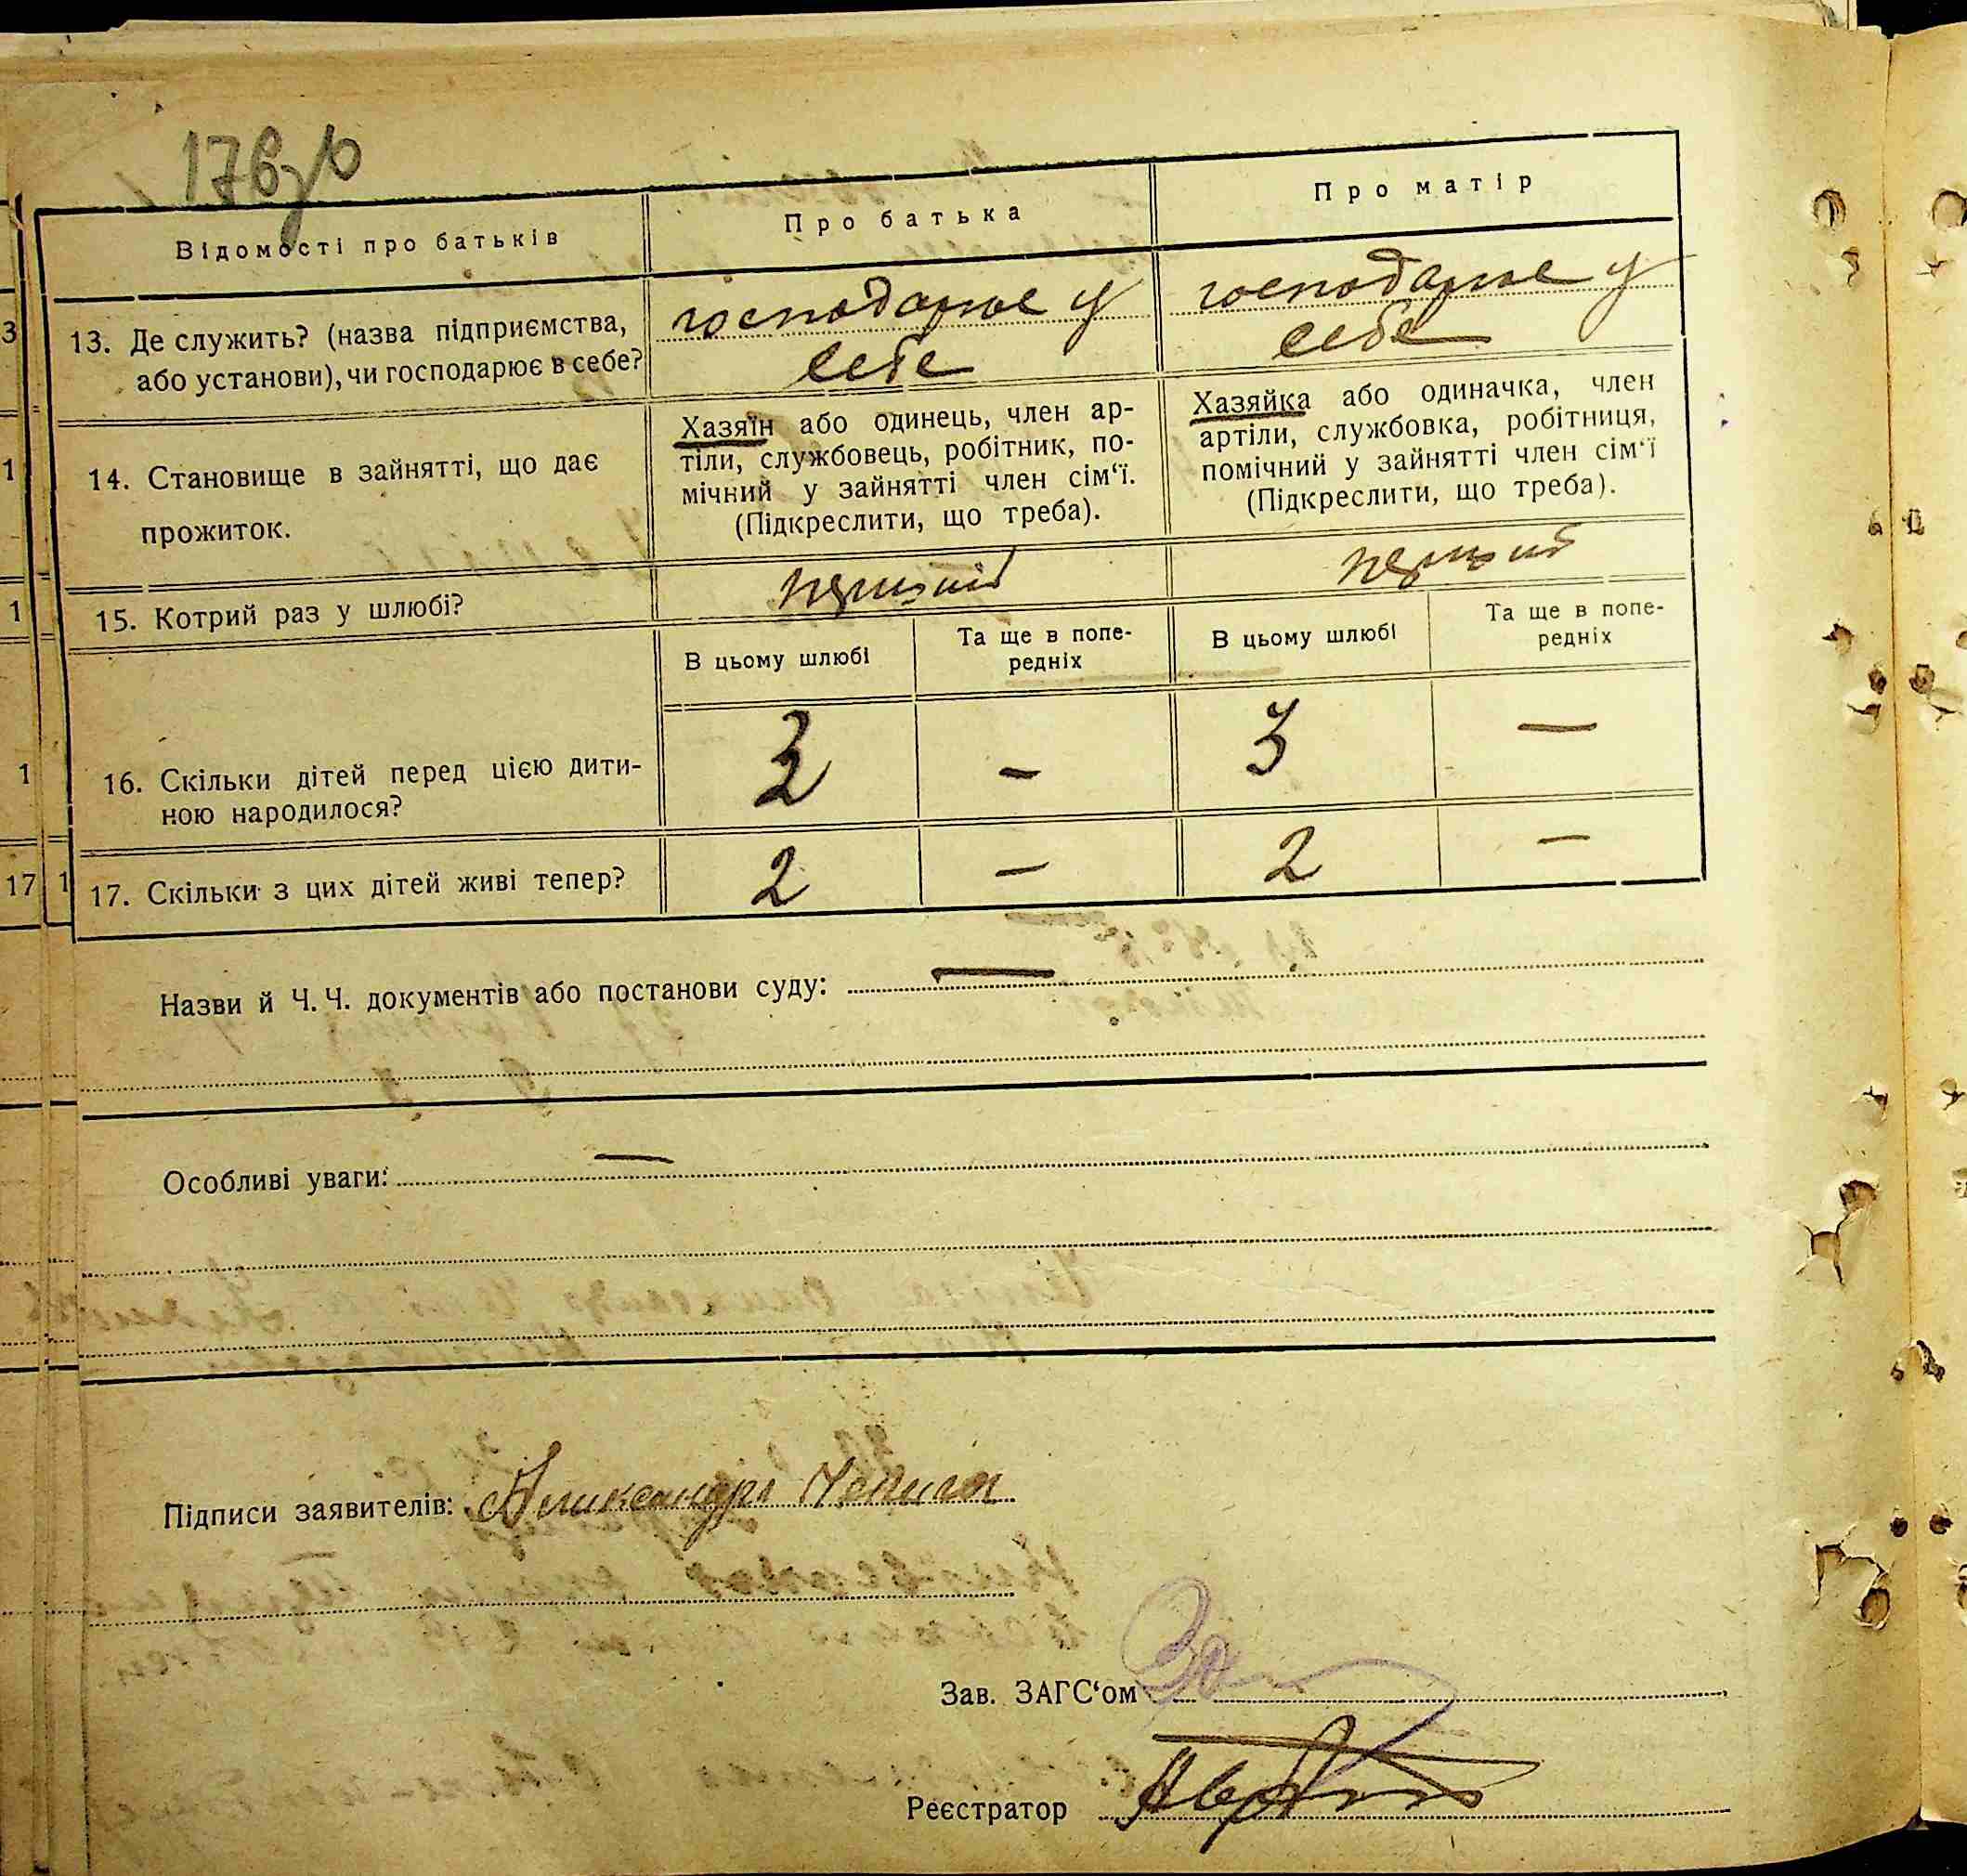 176зв
Відомості про батьків
Про батька
Про матір
13. Де служить? (назва підприємства,
або установи), чи господарює в себе?
господарює у
себе
господарює у
себе
14. Становище в зайнятті, що дає
прожиток.
Хазяїн або одинець, член ар-
тіли, службовець, робітник, по-
мічний у зайнятті член сім‘ї.
(Підкреслити, що треба).
Хазяйка або одиначка, член
артіли, службовка, робітниця,
помічний у зайнятті член сім‘ї
(Підкреслити, що треба).
15. Котрий раз у шлюбі?
перший
перший
В цьому шлюбі
Та ще в попе-
редніх
В цьому шлюбі
Та ще в попе-
редніх
16. Скільки дітей перед цією дити-
ною народилося?
3
—
3
—
17. Скільки з цих дітей живі тепер?
2
—
2
—
Назви й Ч. Ч. документів або постанови суду: —
Особливі уваги: —
Підписи заявителів: Чепига
Зав. ЗАГС‘ом
Реєстратор
3
1
1
1
17
1